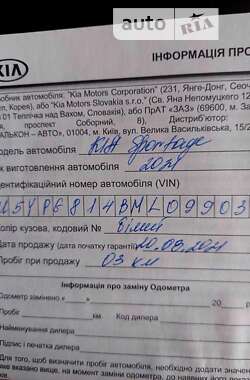 AUTO RIA
ІНФОРМАЦІЯ ПРО
KIA
обник автомобіля: "Kia Motors Corporation" (231, Янге-Донг, Сеоч
ел, Корея), або "Kia Motors Slovakia s.r.o." (Св. Яна Непомуцкего 12
01 Теплічка над Вахом, Словакія), або ПрАТ «ЗАЗ» (69600, м. З
проспект Соборний, 8), Дистриб'ютор:
АЛЬКОН – АВТО», 01004, м. Київ, вул. Велика Васильківська, 15/2
одель автомобіля KIA Sportage
к виготовлення автомобіля 2021
ентифікаційний номер автомобіля (VIN)
U5YPG814BML09903
олір кузова, кодовий № білий
Дата продажу (дата початку гарантії) 20.08.2021
Пробіг при продажу 03 км
Інформація про заміну Одометра
Одометр замінено « » 20
Пробіг Км/Код дилера
Найменування дилера
Підпис і печатка дилера
Для того, щоб визначити пробіг автомобіля, необхідно додати значен
має вказано вище, на момент заміни одометра, до